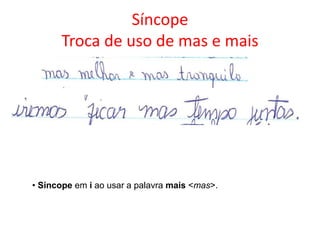 Síncope
Troca de uso de mas e mais
mas melhor e mas tranquilo
iremos ficar mas tempo juntos.
• Sincope em i ao usar a palavra mais <mas>.